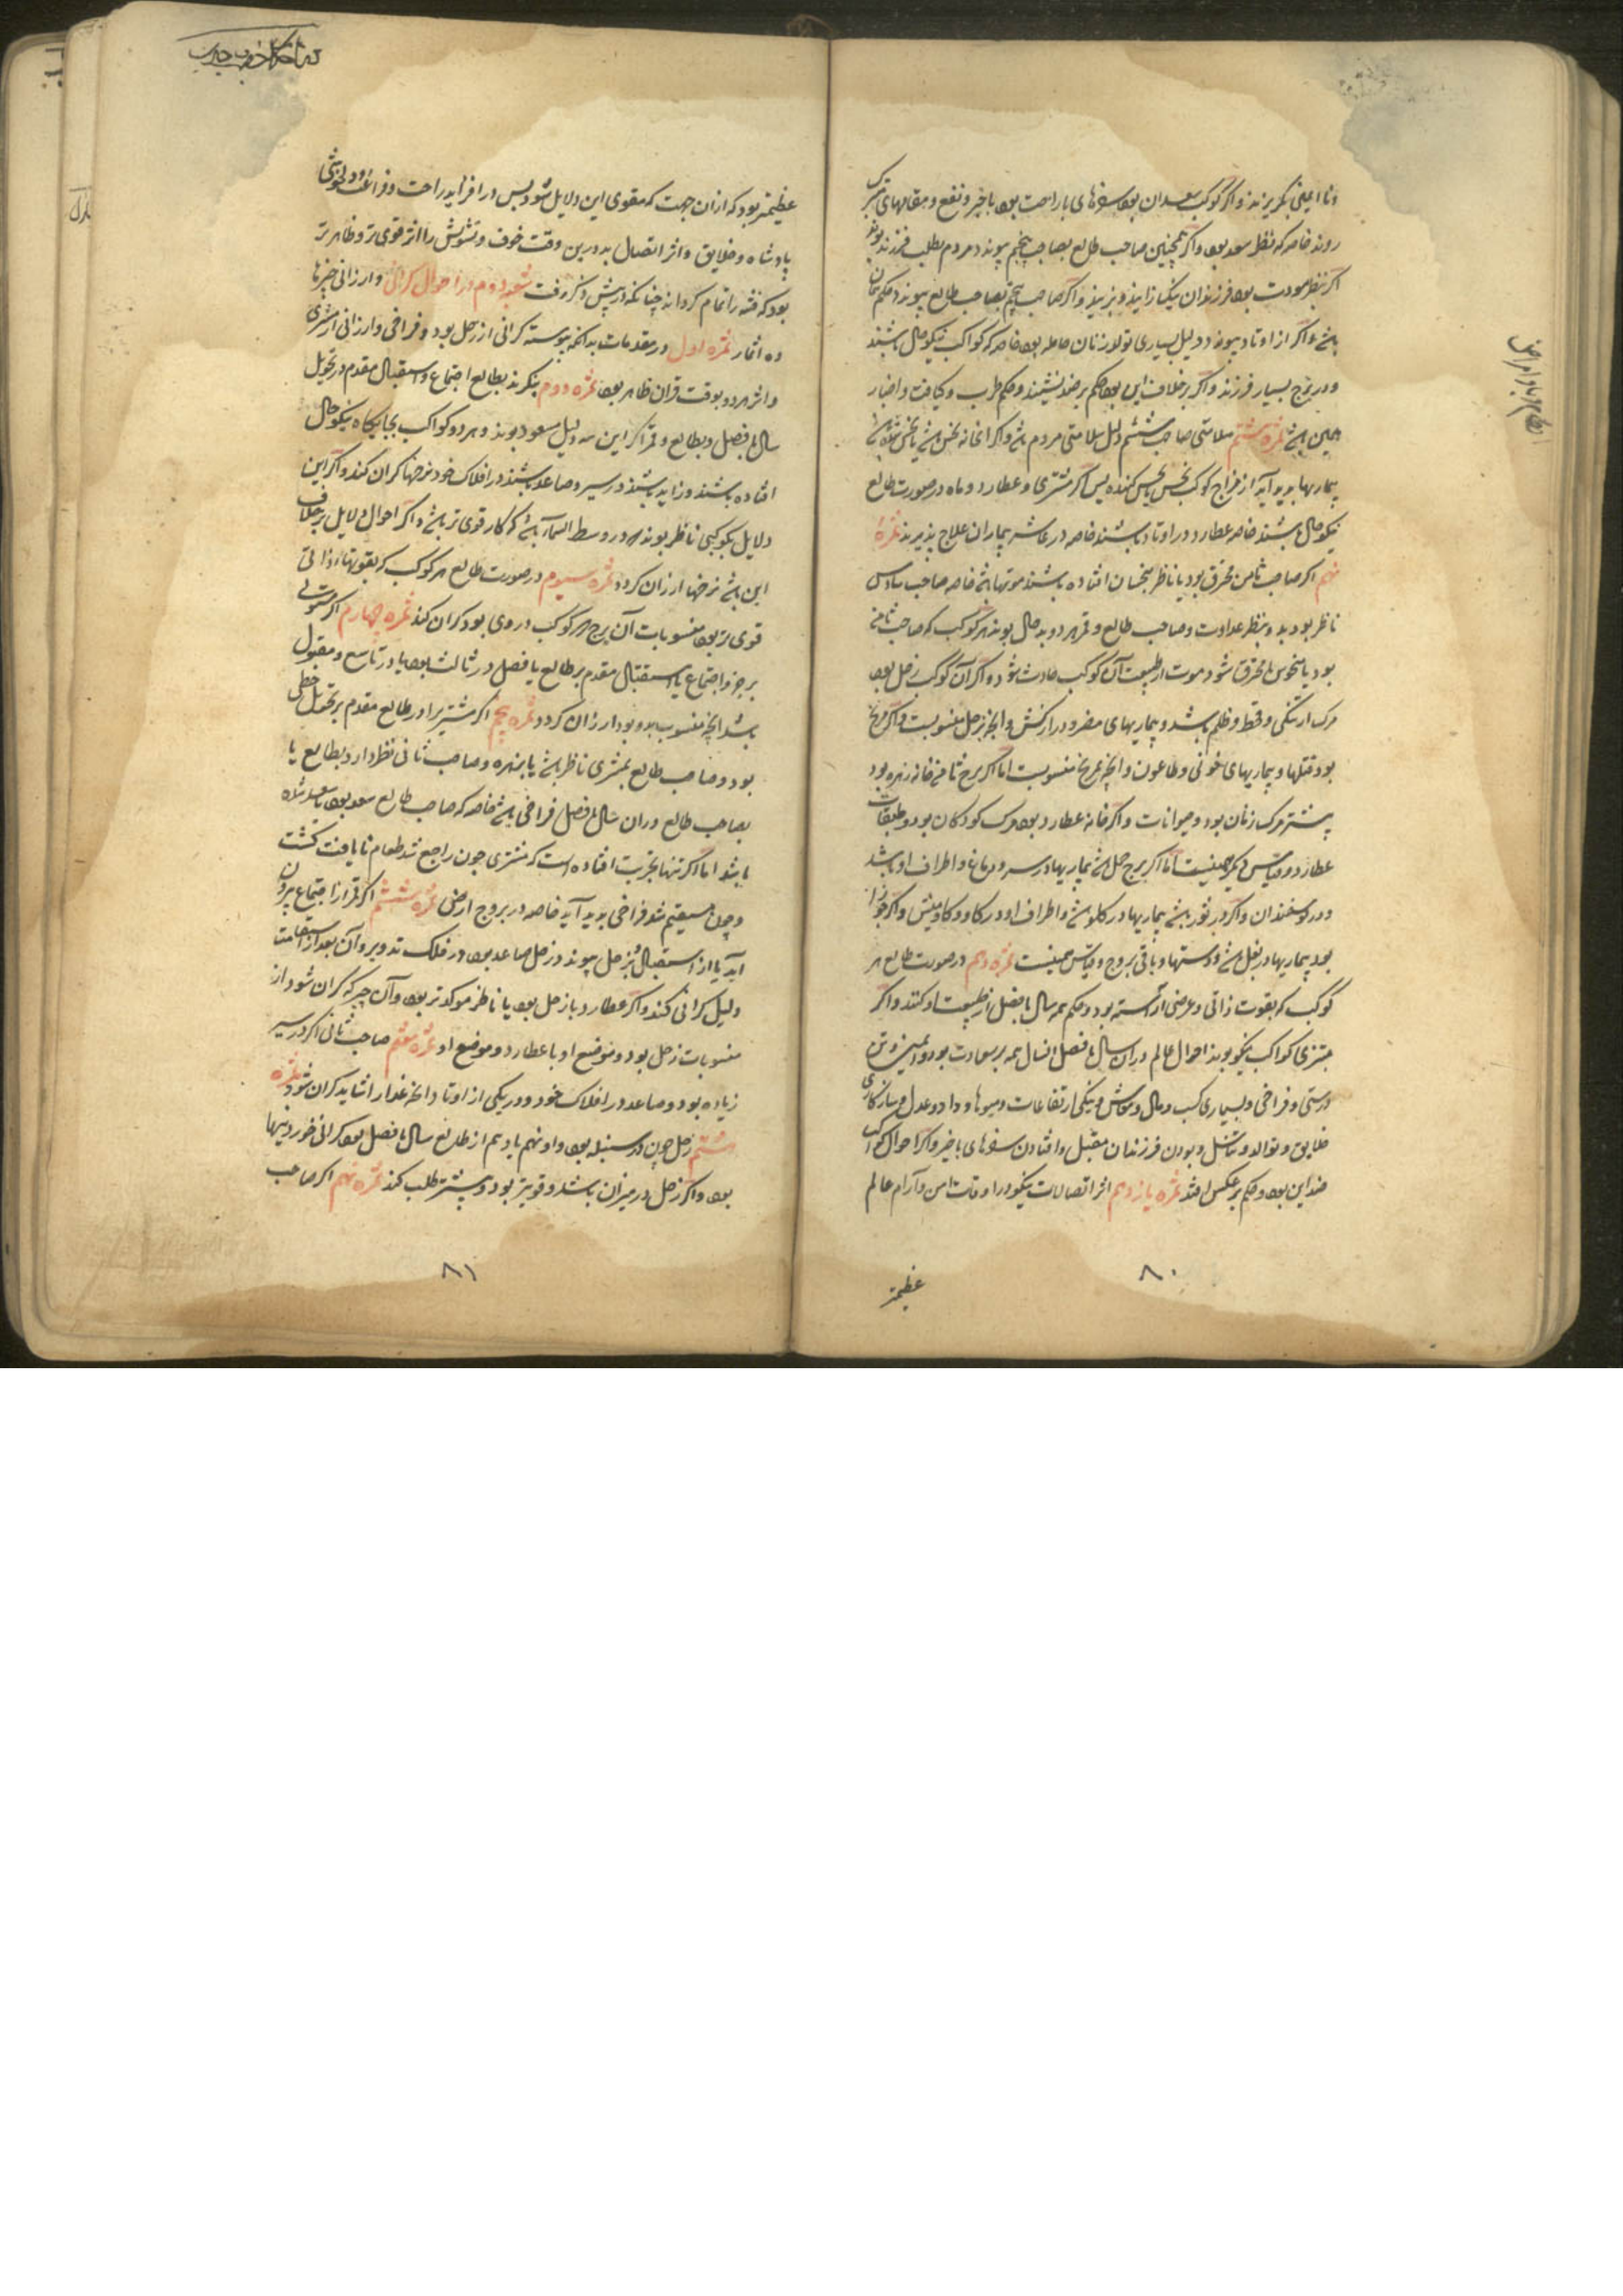 و نا ایمنی بگریزند و اگر کوکب سعدان بود سفرهای باراحت بود باخیر و نفع و بمقامهای متبرک
روند خاصه که بنظر سعد بود و اگر همچنین صاحب طالع بصاحب پنجم پیوندد مردم بطلب فرزند بوند
اگر بنظر مودت بود فرزندان نیک زایند و پزیند و اگر صاحب پنجم بصاحب طالع پیوندد حکم همان
باشد و اگر از اوتاد پیوندد دلیل بسیاری تولد زنان حامله بود خاصه که کواکب نیکوحال باشند
و در برج بسیار فرزند و اگر برخلاف این بود حکم بر ضد نشیند و حکم طرب و ضیافت و اخبار
همین باشد ثمره هشتم سلامتی صاحب ششم دلیل سلامتی مردم باشد و اگر
بیماریها پدید آید از مزاج کوکب نحس کننده پس اگر مشتری و عطارد و ماه در صورت طالع
نیکوحال باشند خاصه عطارد و در اوتاد باشند خاصه در عاشر بیماران علاج پذیرند ثمره
نهم اگر صاحب ثامن محترق بود یا ناظر بنحسان افتاده باشند موتها باشد خاصه صاحب سادس
ناظر بود بد و بنظر عداوت و صاحب طالع و قمر هر دو بدحال بوند هر کوکب که صاحب ثامن
بود یا منحوس یا محترق شود موت از طبیعت آن کوکب حادث شود و اگر آن کوکب زحل بود
مرک از تنگی و قحط و ظلم باشد و بیماریهای مفرد و دراز کش و آنچه بزحل منسوبست و اگر مریخ
بود قتلها و بیماریهای خونی و طاعون و آنچه بمریخ منسوبست اما اگر برج ثامن خانه زهره بود
بیشتر مرک زنان بود و حیوانات و اگر خانه عطارد بود مرک کودکان بود و طبقات
عطارد و قیاس دیگر همینست اما اگر برج حمل باشد بیماریها در سر و دماغ و اطراف او باشد
و در گوسفندان و اگر در ثور باشد بیماریها در کلو باشد و اطراف او و در کاو و کاومیش و اگر جوزا
بود بیماریها در بغل باشد و دستها و باقی بروج و قیاس همینست ثمره دهم در صورت طالع هر
کوکب که بقوت ذاتی و عرضی آراسته بود حکم همه سال یا فصل از طبیعت او کنند و اگر
بیشتری کواکب نیکو بوند احوال عالم در آن سال یا فصل انسال همه بر سعادت بود و ایمنی و تن
درستی و فراخی و بسیاری کسب و مال و معاش و نیکی ارتفاعات و میوها و داد و عدل و سازکاری
خلایق و توالد و تناسل و بودن فرزندان مقبل و افتادن سفرهای باخیر و اگر احوال کواکب
ضد این بود و حکم برعکس افتد ثمره یازدهم اثر اتصالات نیکو در اوقات امن و آرام عالم
۸۰
عظیمتر
عظیمتر بود که از آن جهت که مقوی این دلایل شود پس در افزاید راحت و فراغت و خوشی
پادشاه و خلایق و اثر اتصال بد در این وقت خوف و تشویش را اثر قوی تر و ظاهر تر
بود که فتنه را تمام کرداند چنانکه در پیش ذکر رفت شعبه دوم در احوال گرانی و ارزانی چیزها
ده اثمار ثمره اول در مقدمات بدانکه پیوسته گرانی از زحل بود و فراخی و ارزانی از مشتری
و اثر هر دو بوقت قران ظاهر بود ثمره دوم بنگرند بطالع اجتماع و استقبال مقدم در تحویل
سال یا فصل و بطالع و قمر اگر این سه دلیل مسعود بوند و هر دو کواکب بجایگاه نیکوحال
افتاده باشند و زاید باشند در سیر و صاعد باشند در افلاک خود نرخها گران کند و اگر این
دلایل بکوکبی ناظر بوند که در وسط السماء باشد کار قوی تر باشد و اگر احوال دلایل برخلاف
این باشد نرخها ارزان کردد ثمره سیوم در صورت طالع هر کوکب که بقوتها ذاتی
قوی تر بود منسوبات آن برج هر کوکب در وی بود گران کند ثمره چهارم اگر مستولی
بر جزو اجتماع یا استقبال مقدم بر طالع یا فصل در ثالث بود یا در تاسع و مقبول
باشد آنچه منسوب بدو بود ارزان کردد ثمره پنجم اگر مشتریرا در طالع مقدم بر تحویل حظی
بود و صاحب طالع بمشتری ناظر باشد یا بزهره و صاحب ثانی نظر دارد بطالع یا
بصاحب طالع در آن سال یا فصل فراخی باشد خاصه که صاحب طالع سعد بود
باشد اما اگر تنها بتجربت افتاده است که مشتری چون راجع شد طعام نایافت کشت
و چون مستقیم شد فراخی پدید آید خاصه در بروج ارضی ثمره ششم اگر قمر از اجتماع بیرون
آید یا از استقبال بزحل پیوندد زحل صاعد بود در فلک تدویر و آن بعد از استقامت
دلیل گرانی کند و اگر عطارد با زحل بود یا ناظر موکدتر بود و آن چیز که گران شود از
منسوبات زحل بود و موضع او با عطارد و موضع او ثمره هفتم صاحب ثانی اگر در سیر
زیاده بود و صاعد در افلاک خود و در یکی از اوتاد آنچه غذا را شاید گران شود ثمره
هشتم زحل چون در سنبله بود و او نهم یا دهم از طالع سال یا فصل بود گرانی خوردنیها
بود و اگر زحل در میزان باشد و قویتر بود و بیشتر طلب کند ثمره نهم اگر صاحب
۸۱